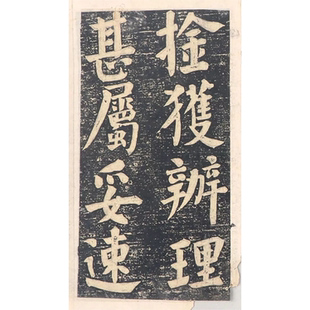 拴獲辦理
甚屬妥速